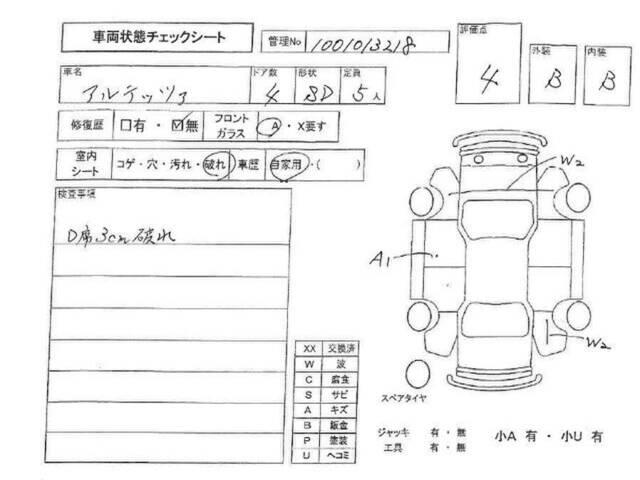 車両状態チェックシート 管理No 1001013218 評価点 4 外装 B 内装 B
車名 アルテッツァ ドア数 4 形状 SD 定員 5人
修復歴 □有・☑無 フロントガラス A・X要す
室内シート コゲ・穴・汚れ・破れ 車歴 自家用・( )
検査事項
D席3cm破れ
W2
A1
W2
XX 交換済
W 波
C 腐食
S サビ
A キズ
B 鈑金
P 塗装
U ヘコミ
スペアタイヤ
ジャッキ 有・無
工具 有・無
小A 有・小U 有